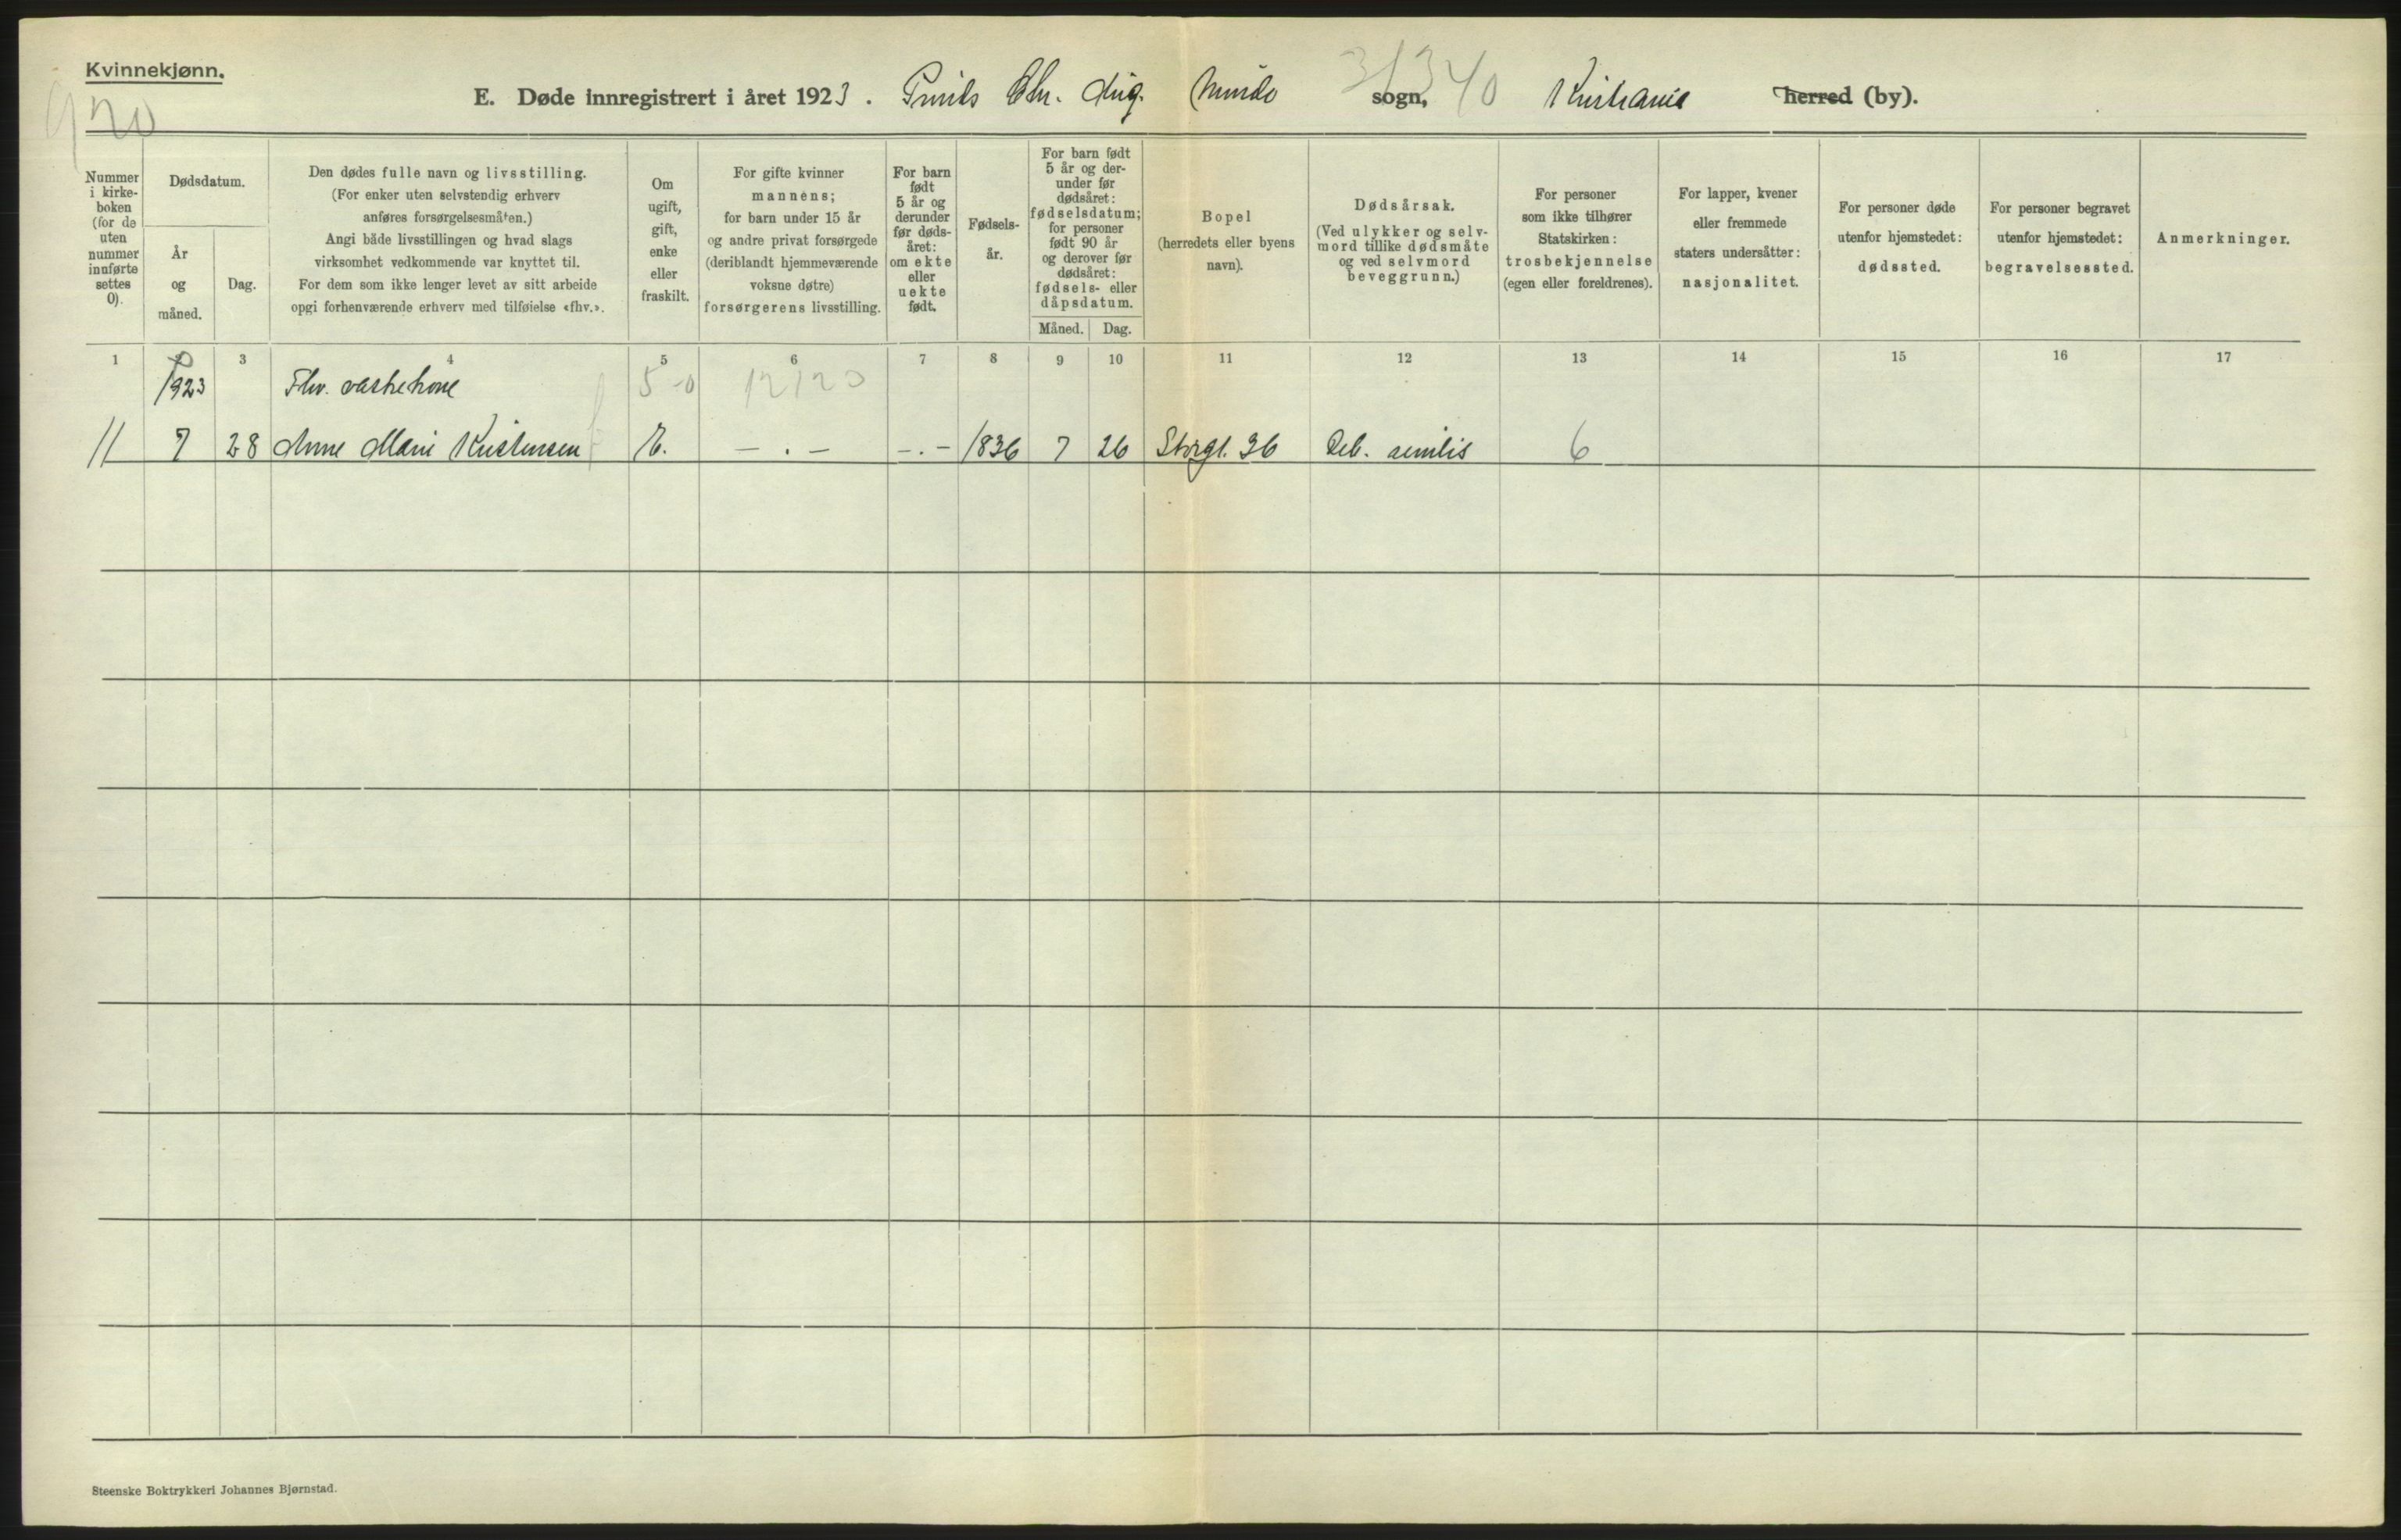 Kvinnekjønn.
920
E. Døde innregistrert i året 1923. Prinds Chr. Aug. Minde sogn, Kristiania herred (by).
31340
Nummer i kirke- boken (for de uten nummer innførte settes 0).
Dødsdatum.
År og måned.
Dag.
Den dødes fulle navn og livsstilling.
(For enker uten selvstendig erhverv
anføres forsørgelsesmåten.)
Angi både livsstillingen og hvad slags
virksomhet vedkommende var knyttet til.
For dem som ikke lenger levet av sitt arbeide
opgi forhenværende erhverv med tilføielse «fhv.».
Om ugift, gift, enke eller fraskilt.
For gifte kvinner
mannens;
for barn under 15 år
og andre privat forsørgede
(deriblandt hjemmeværende
voksne døtre)
forsørgerens livsstilling.
For barn født 5 år og derunder før døds- året: om ekte eller uekte født.
Fødsels- år.
For barn født 5 år og der- under før dødsåret: fødselsdatum; for personer født 90 år og derover før dødsåret: fødsels- eller dåpsdatum.
Måned. Dag.
Bopel
(herredets eller byens
navn).
Dødsårsak.
(Ved ulykker og selv-
mord tillike dødsmåte
og ved selvmord
beveggrunn.)
For personer
som ikke tilhører
Statskirken:
trosbekjennelse
(egen eller foreldrenes).
For lapper, kvener
eller fremmede
staters undersåtter:
nasjonalitet.
For personer døde
utenfor hjemstedet:
dødssted.
For personer begravet
utenfor hjemstedet:
begravelsessted.
Anmerkninger.
1 2 3 4 5 6 7 8 9 10 11 12 13 14 15 16 17
1923 Fhv. vaskekone 5-0 12120
11 7 28 Anne Marie Kristensen E. — . — — . — 1836 7 26 Storgt. 36 Deb. senilis 6
Steenske Boktrykkeri Johannes Bjørnstad.